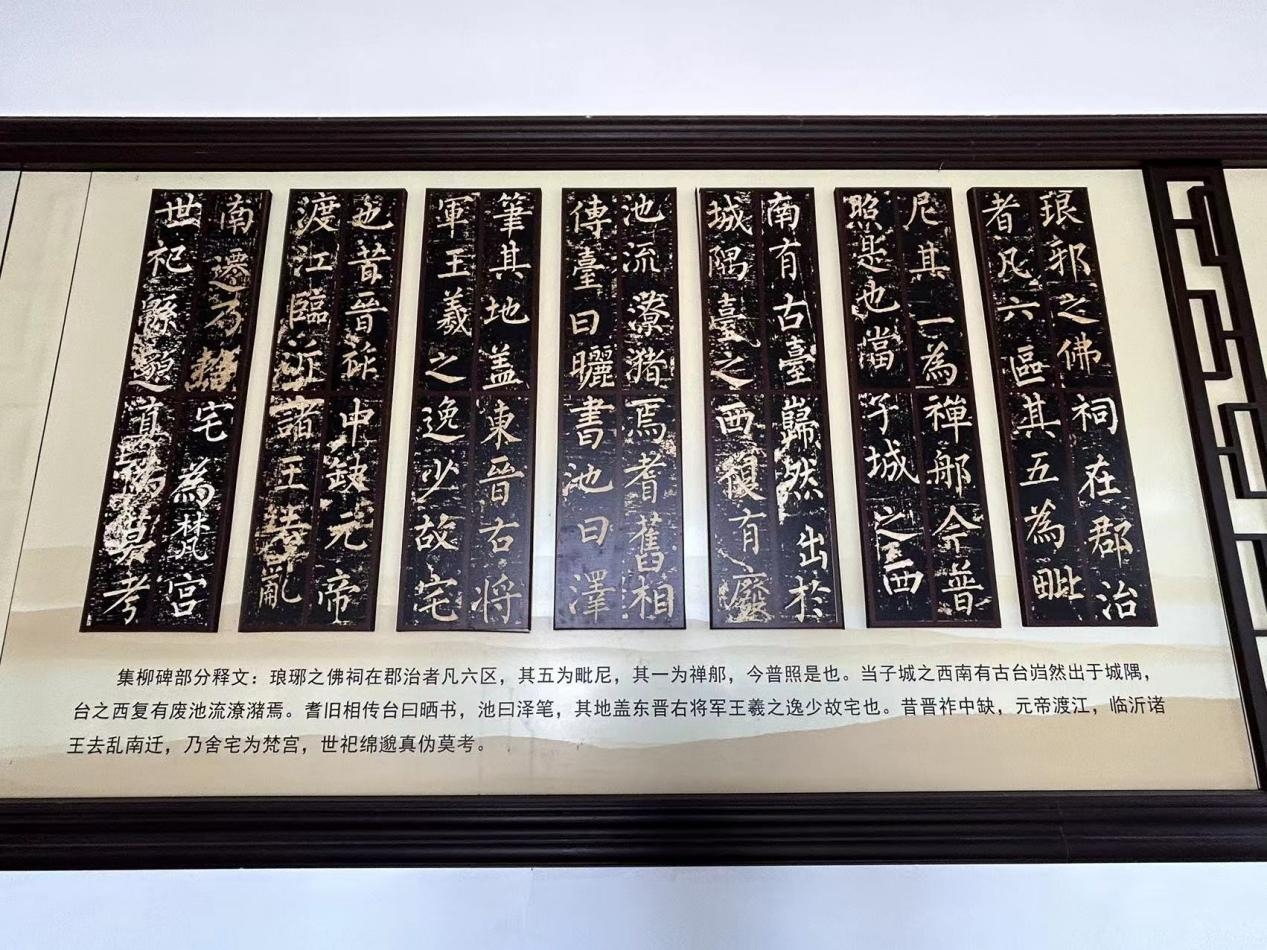 琅邪之佛祠在郡治
者凡六區其五為毗
尼其一為禪郍今普
照是也當子城之西
南有古臺巋然出於
城隅臺之西復有廢
池流潦瀦焉耆舊相
傳臺曰曬書池曰澤
筆其地盖東晉右将
軍王羲之逸少故宅
也昔晉祚中缺元帝
渡江臨沂諸王去亂
南遷乃捨宅為梵宮
世祀緜邈真偽莫考
集柳碑部分释文：琅琊之佛祠在郡治者凡六区，其五为毗尼，其一为禅郍，今普照是也。当子城之西南有古台岿然出于城隅，
台之西复有废池流潦潴焉。耆旧相传台曰晒书，池曰泽笔，其地盖东晋右将军王羲之逸少故宅也。昔晋祚中缺，元帝渡江，临沂诸
王去乱南迁，乃舍宅为梵宫，世祀绵邈真伪莫考。